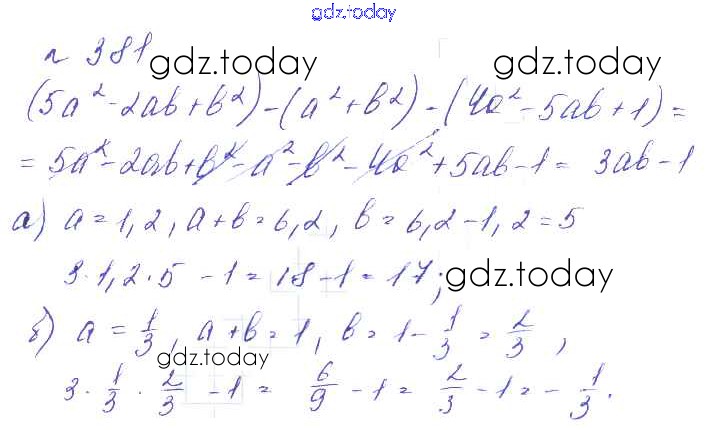 gdz.today
№ 381 gdz.today gdz.today
(5a² - 2ab + b²) - (a² + b²) - (4a² - 5ab + 1) =
= 5a² - 2ab + b² - a² - b² - 4a² + 5ab - 1 = 3ab - 1
а) a = 1,2, a + b = 6,2, b = 6,2 - 1,2 = 5
3 · 1,2 · 5 - 1 = 18 - 1 = 17; gdz.today
б) a = 1/3, a + b = 1, b = 1 - 1/3 = 2/3,
gdz.today
3 · 1/3 · 2/3 - 1 = 6/9 - 1 = 2/3 - 1 = - 1/3.